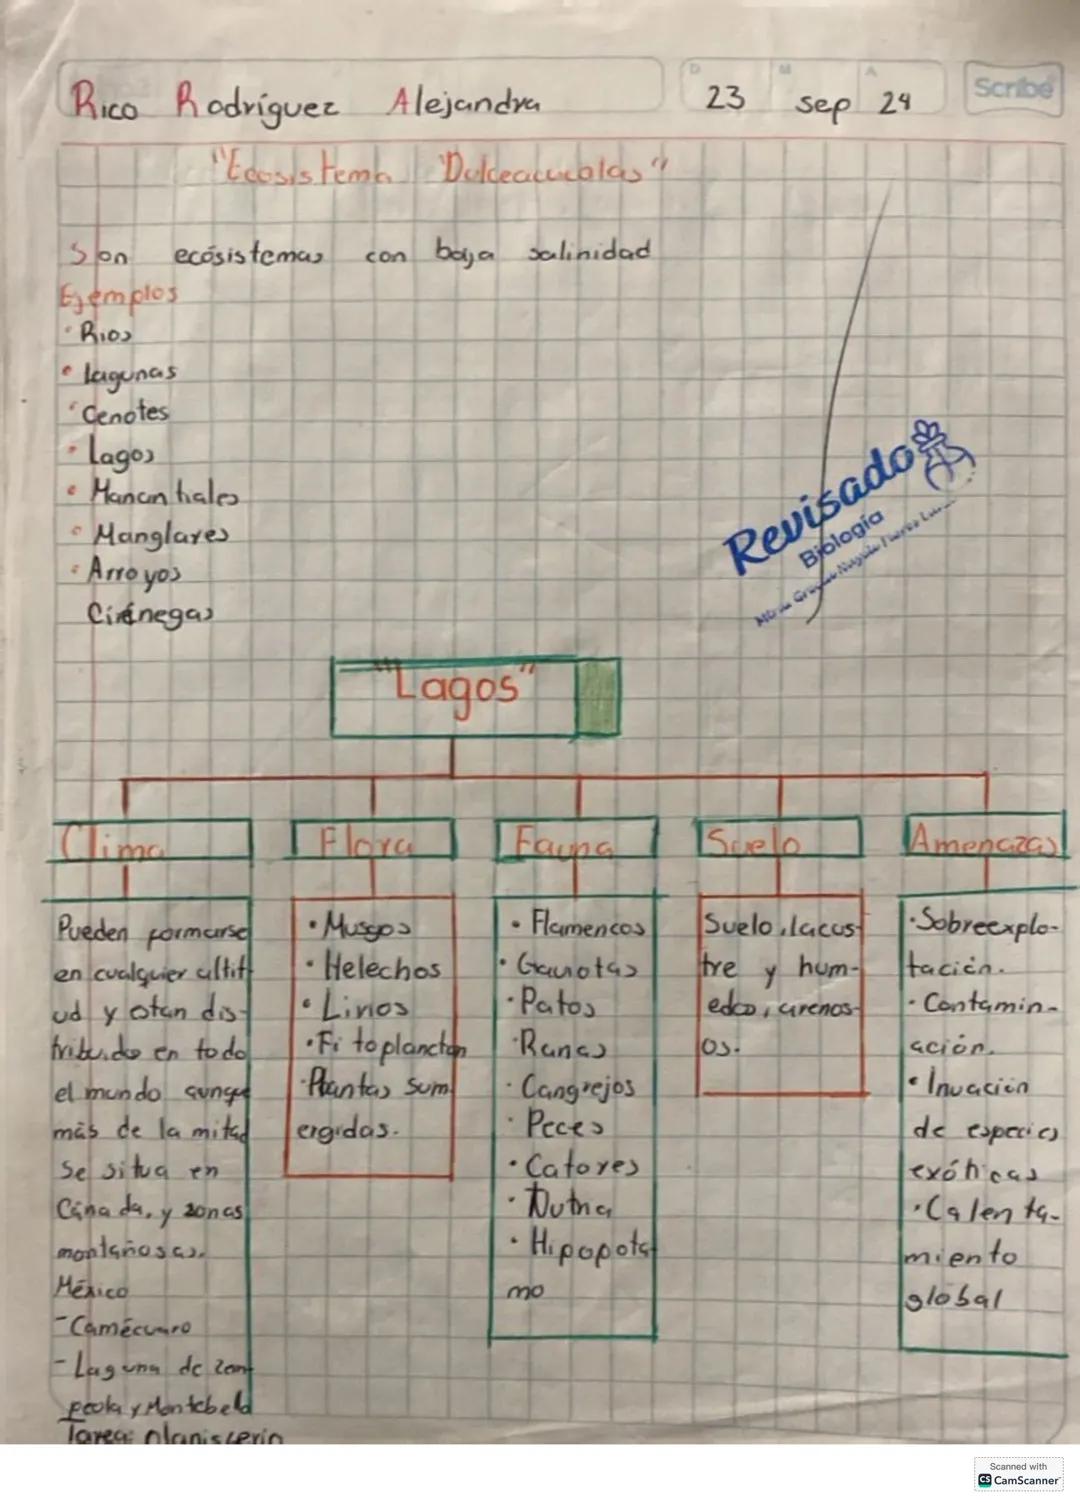 Rico Rodríguez Alejandra
D M A
23 sep 24
Scribe
"Ecosistema Dulceacuicolas"
Son ecósistemas con baja salinidad
Ejemplos
• Rios
• lagunas
• Cenotes
• Lagos
• Manantiales
• Manglares
• Arroyos
Ciénegas
Revisado
Biología
"Lagos"
Clima
Flora
Fauna
Suelo
Amenazas
Pueden formarse
en cualquier altit
ud y estan dis-
tribuido en todo
el mundo aunque
más de la mitad
se situa en
Cánada, y zonas
montañosas.
México
- Camécuaro
- Laguna de zem
poola y Montebeld
Tarea: planisferio
• Musgos
• Helechos
• Lirios
• Fitoplancton
• Plantas sum
ergidas.
• Flamencos
• Gaviotas
• Patos
• Ranas
• Cangrejos
• Peces
• Catores
• Nutria
• Hipopóta
mo
Suelo, lacus-
tre y hum-
edos, arenos-
os.
• Sobreexplo-
tación.
• Contamin-
ación.
• Invación
de especies
exóticas
• Calenta-
miento
global
Scanned with
CS CamScanner